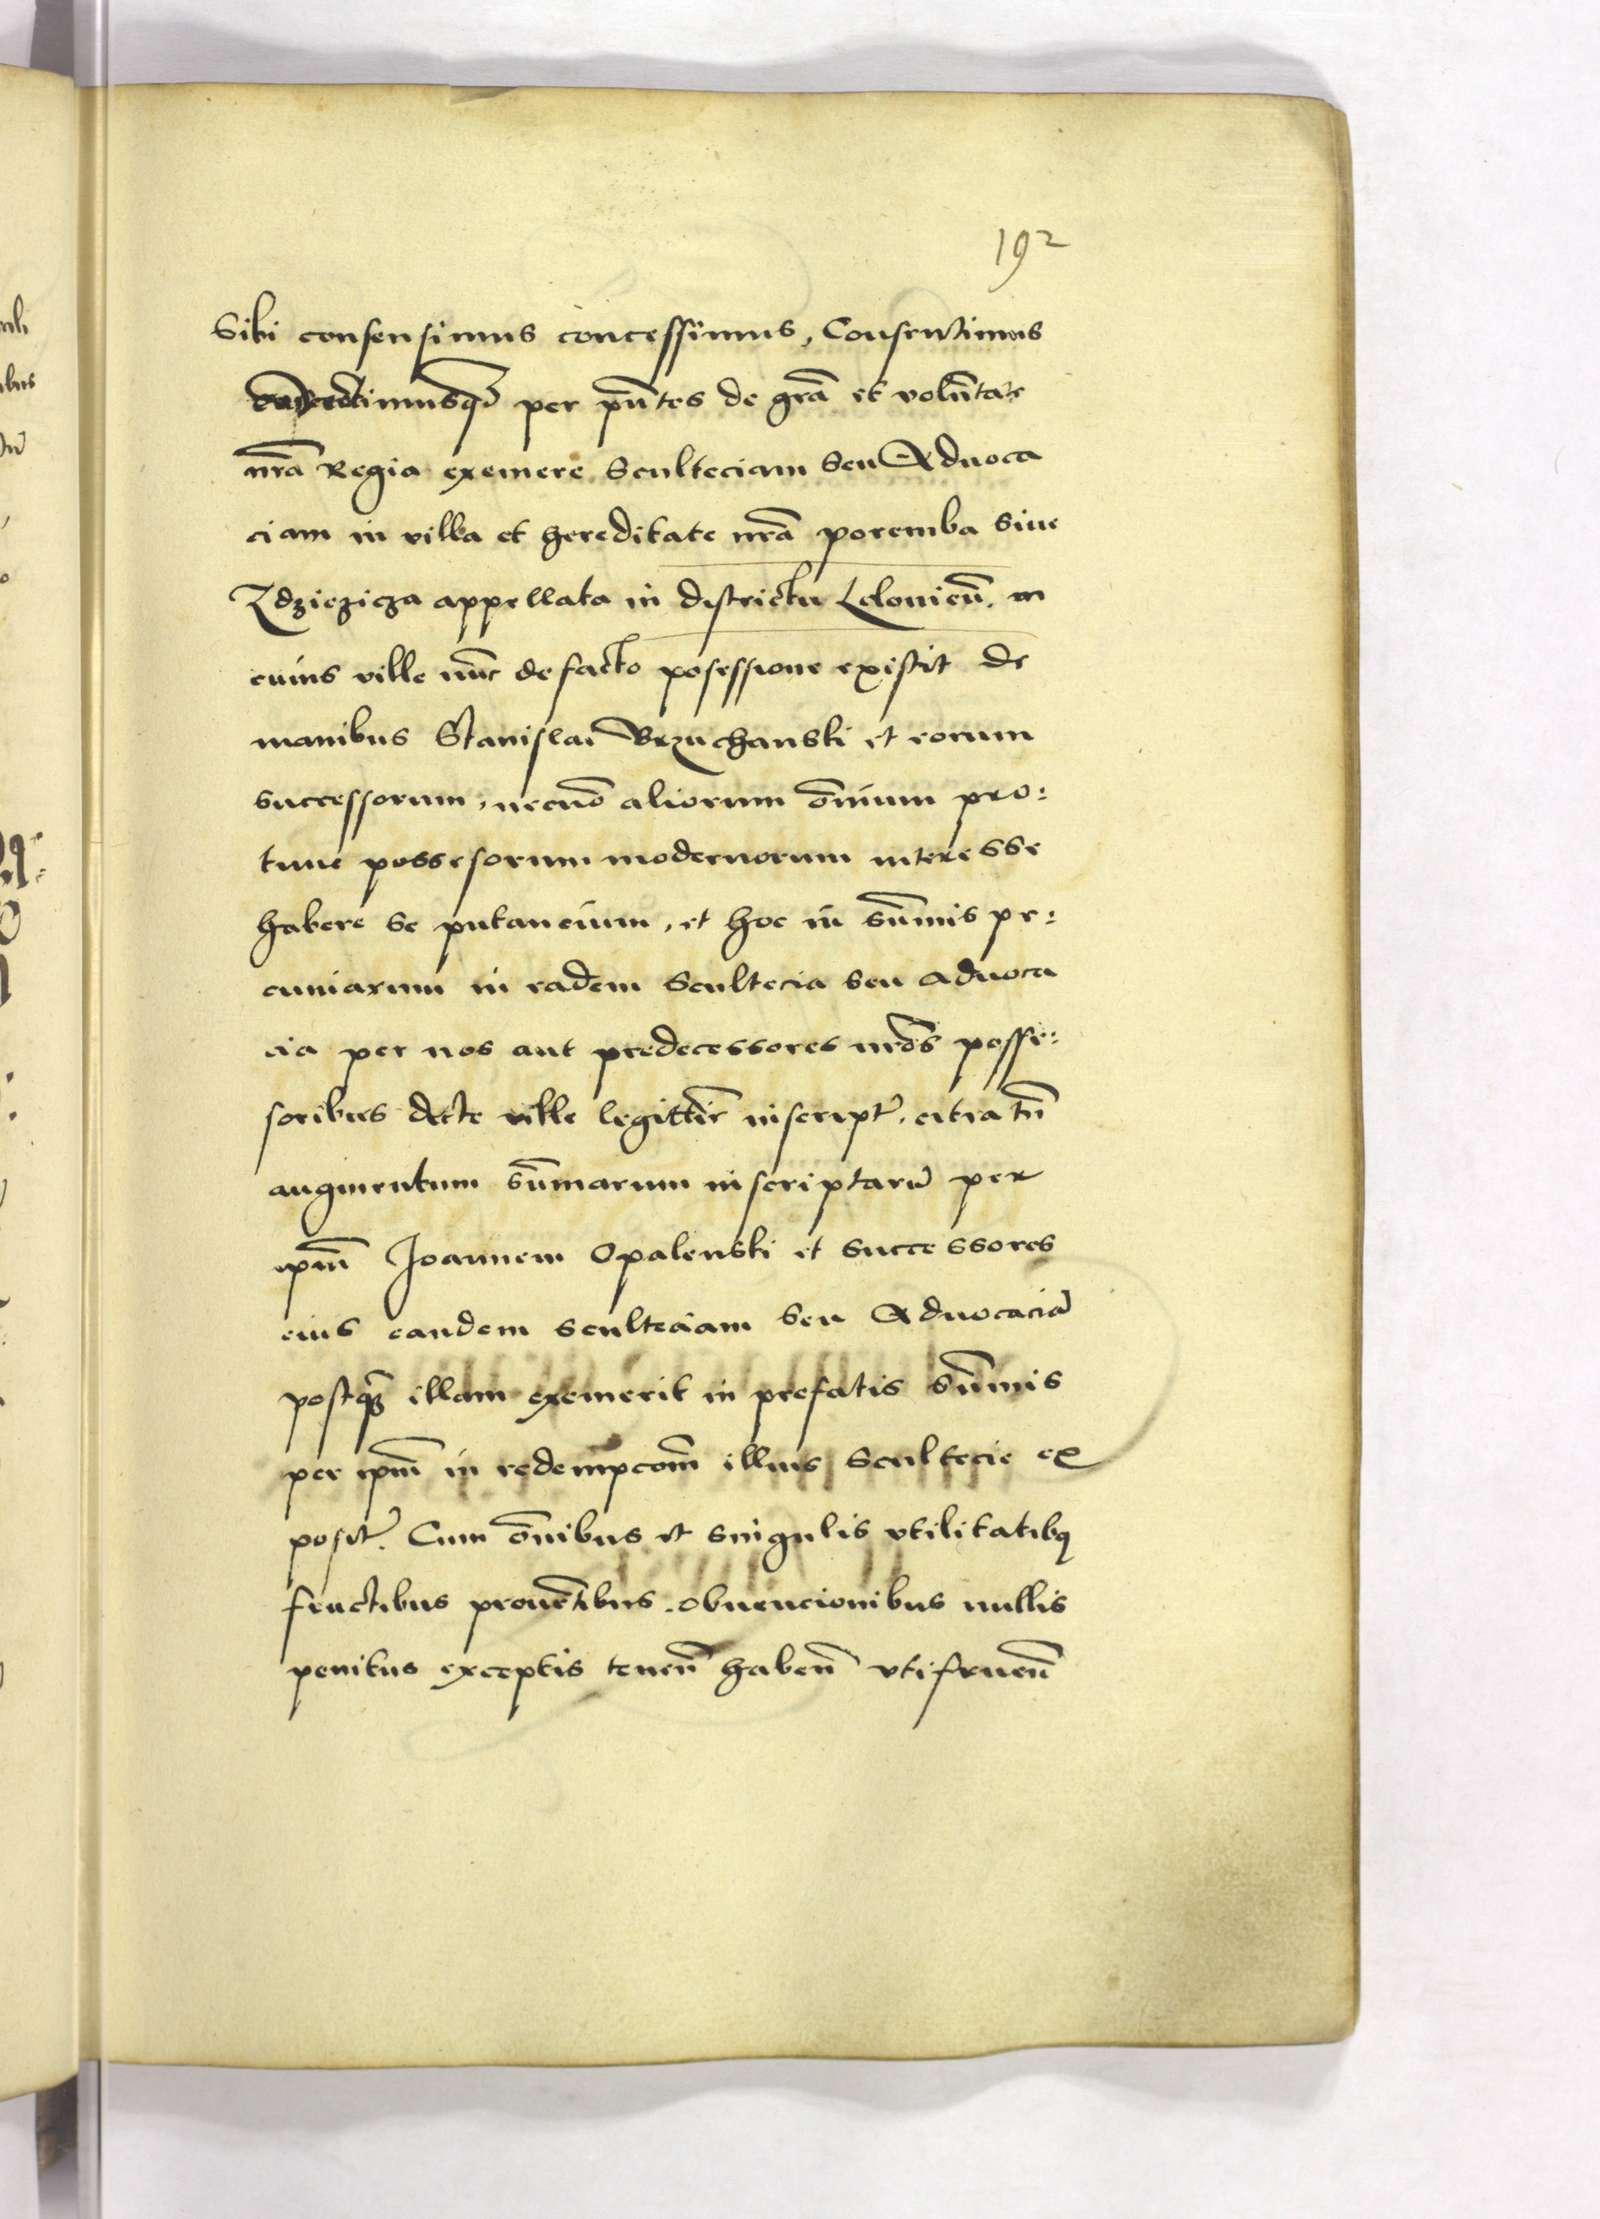 192
Sibi consensimus concessimus, Consentimus
concedimusq̃ per pñtes de grã et volũtate
nrã Regia exemere Sculteciam seu Aduoca
ciam in villa et hereditate nrã poremba siue
Zdzieziza appellata in districtu Leloviẽn. in
cuius ville nũc de facto posessione existit de
manibus Stanislai Brzuchanski et eorum
successorum, necnõ aliorum õmium pro:
tunc possesorum modernorum interesse
habere se putancium, et hoc in sũmis pe:
cuniarum in eadem Scultecia seu aduoca
cia per nos aut predecessores nrõs posse:
soribus dicte ville legittiẽ inscript̃, citra tñ
augmentum sũmarum inscriptarũ per
ipm̃ Joannem Opalenski et successores
eius eandem sculteciam seu Aduocaciã
postq̃ illam exemerit in prefatis sũmis
per ipm̃ in redempcom̃ illius Scultecie ex
posit̃. Cum õnibus et singulis vtilitatibq
fructibus prouẽtibus obuencionibus nullis
penitus exceptis teneñ habeñ vtifrueñ